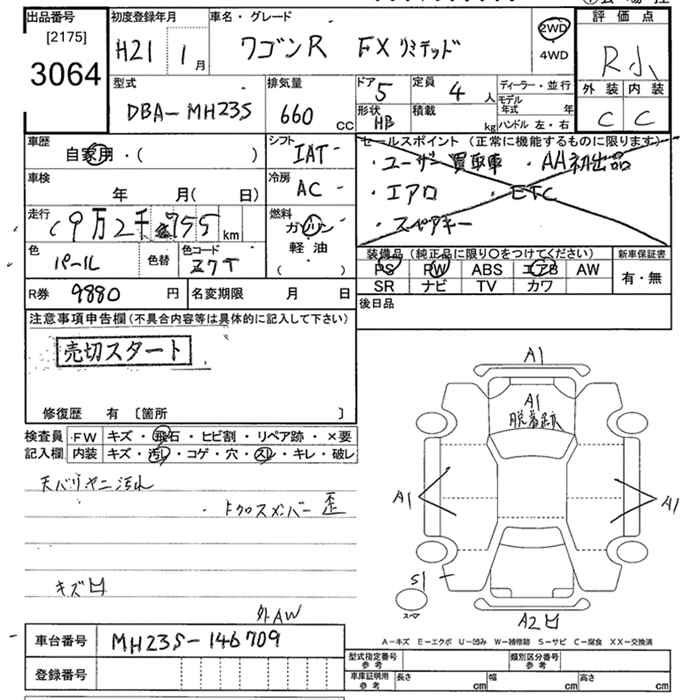 出品番号 初度登録年月 車名・グレード 評価点
[2175]
3064
H21 1月 ワゴンR FXリミテッド 2WD
4WD R小
外装 内装
C C
型式 排気量 ドア 定員 ディーラー・並行
DBA-MH23S 660cc 5 4人 モデル年式 年
形状 積載
HB kg ハンドル 左・右
車歴 シフト セールスポイント(正常に機能するものに限ります)
自家用・( ) IAT- ・ユーザー買取車 ・AA初出品
車検 冷房 ・エアロ ・ETC
年 月( 日) AC- ・スペアキー
走行 燃料
9万2千755km ガソリン
軽油
( ・ )
色 色替 色コード 装備品(純正品に限り〇をつけてください) 新車保証書
パール Z7T PS PW ABS エアB AW 有・無
SR ナビ TV カワ
R券 9880円 名変期限 月 日 後日品
注意事項申告欄(不具合内容等は具体的に記入して下さい)
売切スタート
修復歴 有 〔箇所 〕
検査員 FW キズ・飛石・ヒビ割・リペア跡・×要
記入欄 内装 キズ・汚レ・コゲ・穴・スレ・キレ・破レ
天バリヤニ汚れ
・トクロスメンバー歪
キズ凹
外AW
A1
A1
脱着跡
A1 A1
S1
スペア
A2凹
A-キズ E-エクボ U-凹み W-補修跡 S-サビ C-腐食 XX-交換済
車台番号 MH23S-146709
登録番号
型式指定番号 参考 類別区分番号 参考
車庫証明用 参考 長さ cm 幅 cm 高さ cm